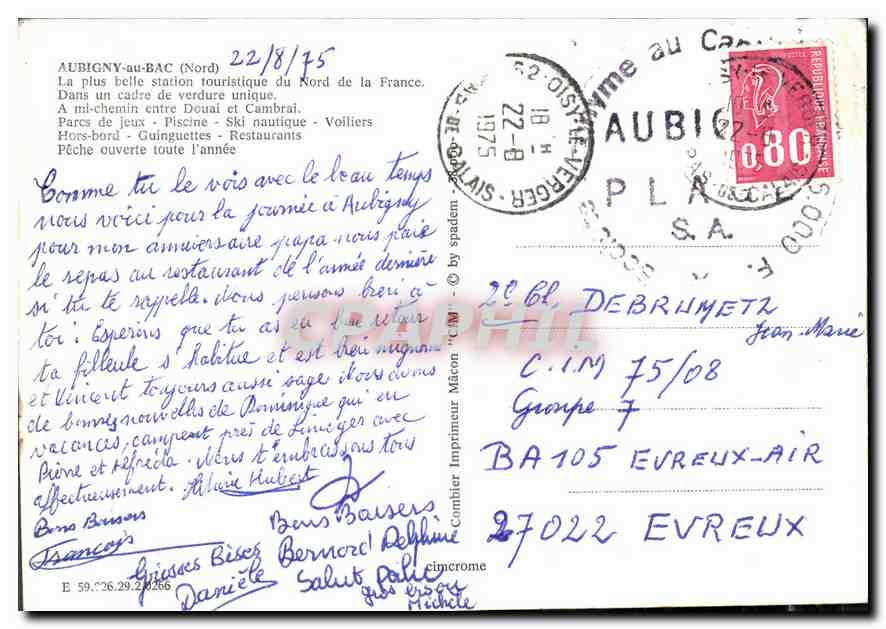 AUBIGNY-au-BAC (Nord) 22/8/75
La plus belle station touristique du Nord de la France.
Dans un cadre de verdure unique.
A mi-chemin entre Douai et Cambrai.
Parcs de jeux - Piscine - Ski nautique - Voiliers
Hors-bord - Guinguettes - Restaurants
Pêche ouverte toute l'année
Comme tu le vois avec le beau temps
nous voici pour la journée à Aubigny
pour mon anniversaire papa nous paie
le repas au restaurant de l'année dernière
si tu te rappelle. Nous pensons bien à
toi. Espérons que tu as eu bon retour
ta filleule s'habitue et est bien mignonne
et Vincent toujours aussi sage Nous avons
de bonnes nouvelles de Dominique qui en
vacances, campent près de Limoges avec
Pierre et Alfréda. Nous t'embrassons tous
affectueusement. Hubert
Bons Baisers
François
Bons Baisers
Grosses Bises Bernard Delphine
Danièle Salut
gros
Michèle
E 59.026.29.2.0266
cimcrome
Combier Imprimeur Mâcon "CIM" - © by spadem
62-OISY-LE-VERGER
18 H
22-8
1975
PAS-DE-CALAIS
au
AUBIG
PLA
S.A.
5.000 F.
REPUBLIQUE FRANÇAISE
0,80
2e Cl. DEBRUMETZ
Jean-Marie
C.I.M 75/08
Groupe 7
BA 105 EVREUX-AIR
27022 EVREUX
CPAPHIL